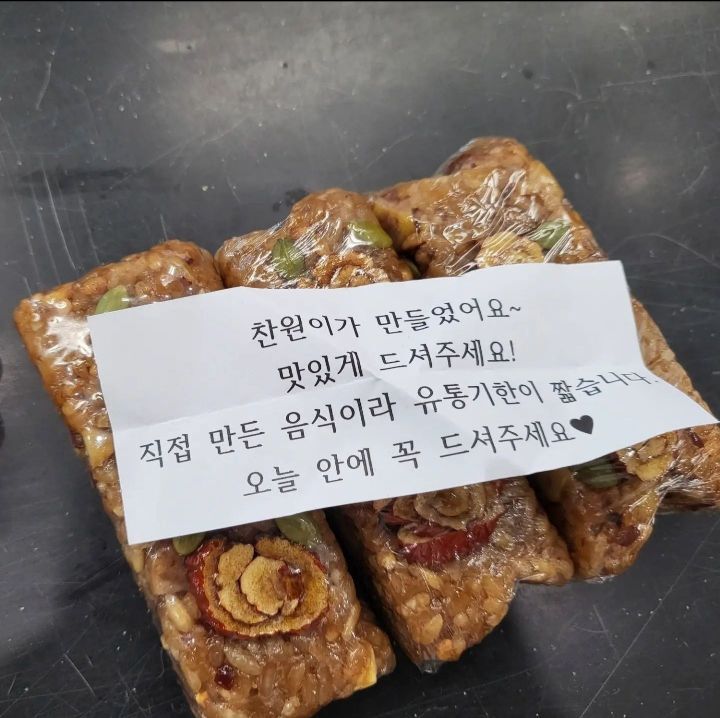 찬원이가 만들었어요~
맛있게 드셔주세요!
직접 만든 음식이라 유통기한이 짧습니다.
오늘 안에 꼭 드셔주세요♥